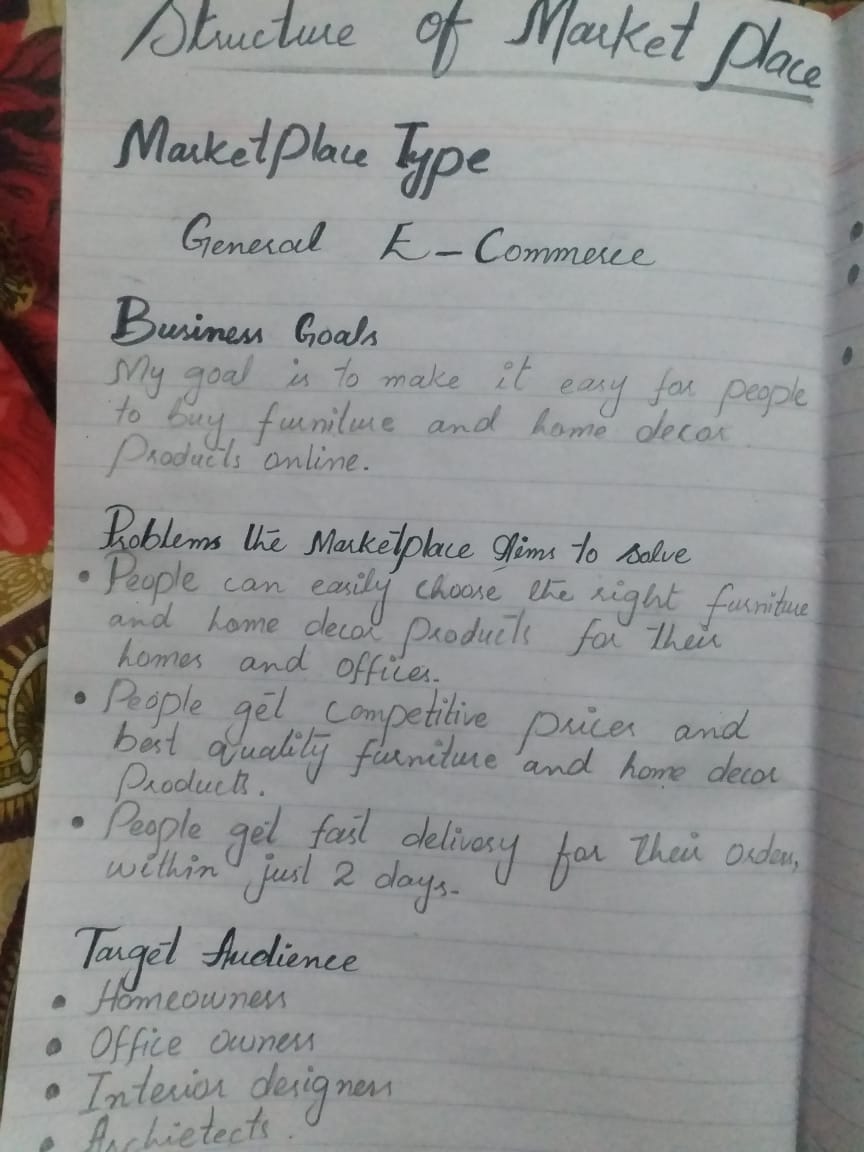 Structure of Market Place
MarketPlace Type
General E-Commerce
Business Goals
My goal is to make it easy for people
to buy furniture and home decor
Products online.
Problems the Marketplace Aims to solve
• People can easily choose the right furniture
and home decor products for their
homes and offices.
• People get competitive prices and
best quality furniture and home decor
Products.
• People get fast delivery for their orders,
within just 2 days.
Target Audience
• Homeowners
• Office owners
• Interior designers
• Archietects.